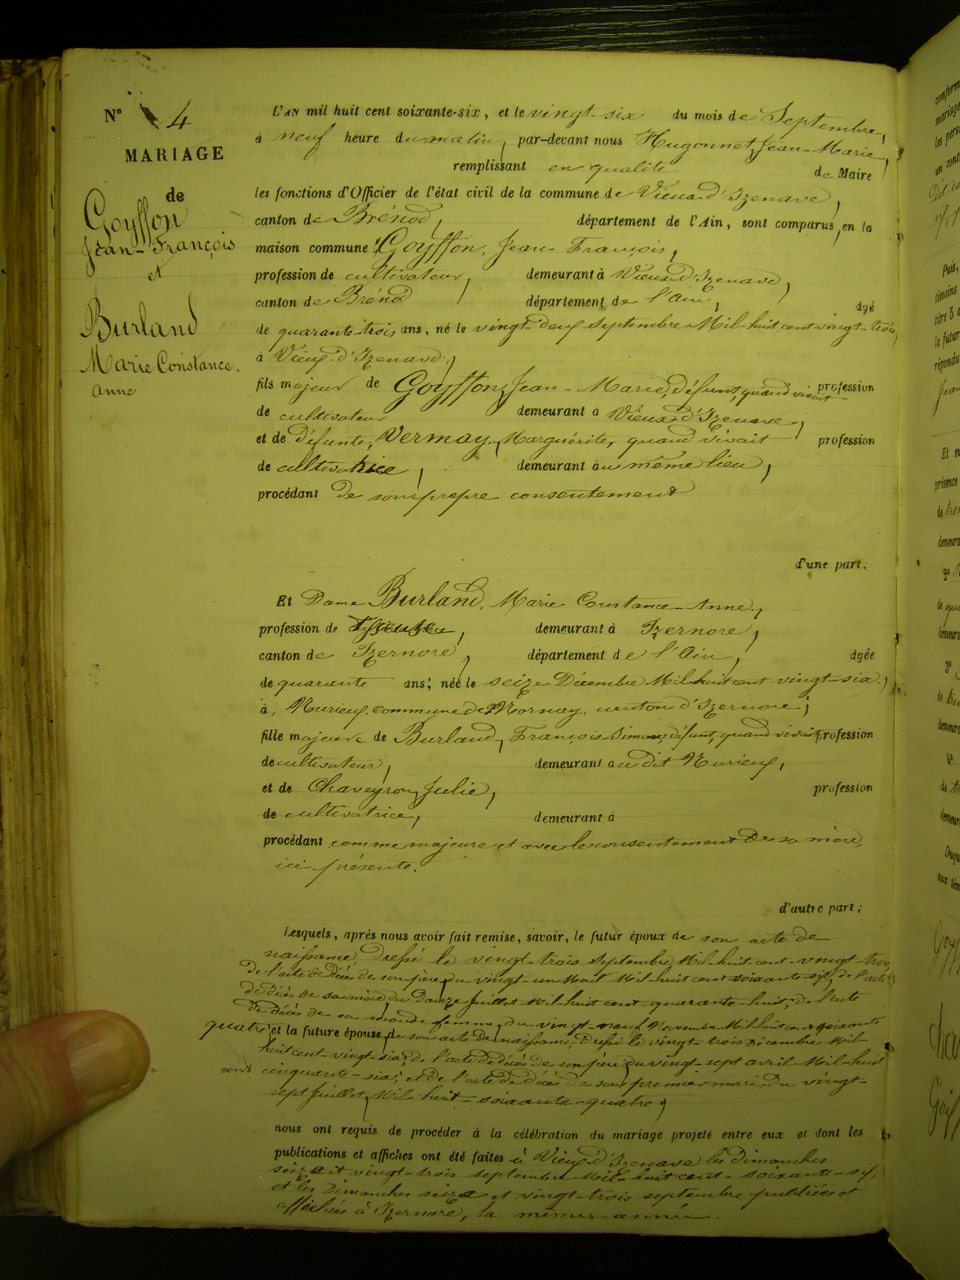 N° 4
MARIAGE
de
Goyffon
Jean-François
et
Burland
Marie Constance.
anne
L'AN mil huit cent soixante-six, et le vingt-six du mois de Septembre,
à neuf heure du matin, par-devant nous Hugonnet, Jean-Marie,
remplissant en qualité de Maire
les fonctions d'Officier de l'état civil de la commune de Vieux d'Izenave,
canton de Brénod, département de l'Ain, sont comparus, en la
maison commune Goyffon, Jean-François,
profession de cultivateur, demeurant à Vieux d'Izenave,
canton de Brénod département de l'Ain, âgé
de quarante-trois ans, né le vingt-deux Septembre Mil-huit cent vingt-trois,
à Vieux-d'Izenave,
fils majeur de Goyffon, Jean-Marie, défunt, quand vivait profession
de cultivateur demeurant à Vieux d'Izenave,
et de défunte, Vermay, Marguérite, quand vivait profession
de cultivatrice, demeurant au même lieu,
procédant de son propre consentement
d'une part.
Et Dame Burland, Marie Constance-Anne,
profession de demeurant à Izernore,
canton de Izernore, département de l'Ain, âgée
de quarante ans, née le seize Décembre Mil-huit cent vingt-six,
à Nurieux, commune de Mornay, canton d'Izernore,
fille majeure de Burland, François-Simon défunt, quand vivait profession
de cultivateur, demeurant au dit Nurieux,
et de Chaveyron, Julie, profession
de cultivatrice, demeurant à
procédant comme majeure et avec le consentement de sa mère,
ici présente.
d'autre part;
Lesquels, après nous avoir fait remise, savoir, le futur époux de son acte de
naissance, dressé le vingt-trois Septembre Mil-huit-cent-vingt-trois
de l'acte de décès de son père, du vingt-un Mil-huit cent soixante-six, de l'acte
de décès de sa mère du Douze Juillet Mil-huit cent quarante-huit; de l'acte
de décès de sa seconde femme, du vingt-neuf Novembre Mil-huit cent soixante
quatre; et la future épouse, de son acte de naissance, dressé le vingt trois Décembre Mil-
huit cent-vingt-six, de l'acte de décès de son père, du vingt-sept avril Mil-huit
cent cinquante-six; et de l'acte de décès de son premier mari, du vingt-
sept Juillet Mil-huit-soixante-quatre,
nous ont requis de procéder à la célébration du mariage projeté entre eux et dont les
publications et affiches ont été faites à Vieux-d'Izenave les Dimanches
seize et vingt-trois septembre Mil-huit cent-soixante-six,
et les Dimanches seize et vingt-trois septembre publiées et
affichées à Izernore, la même année.